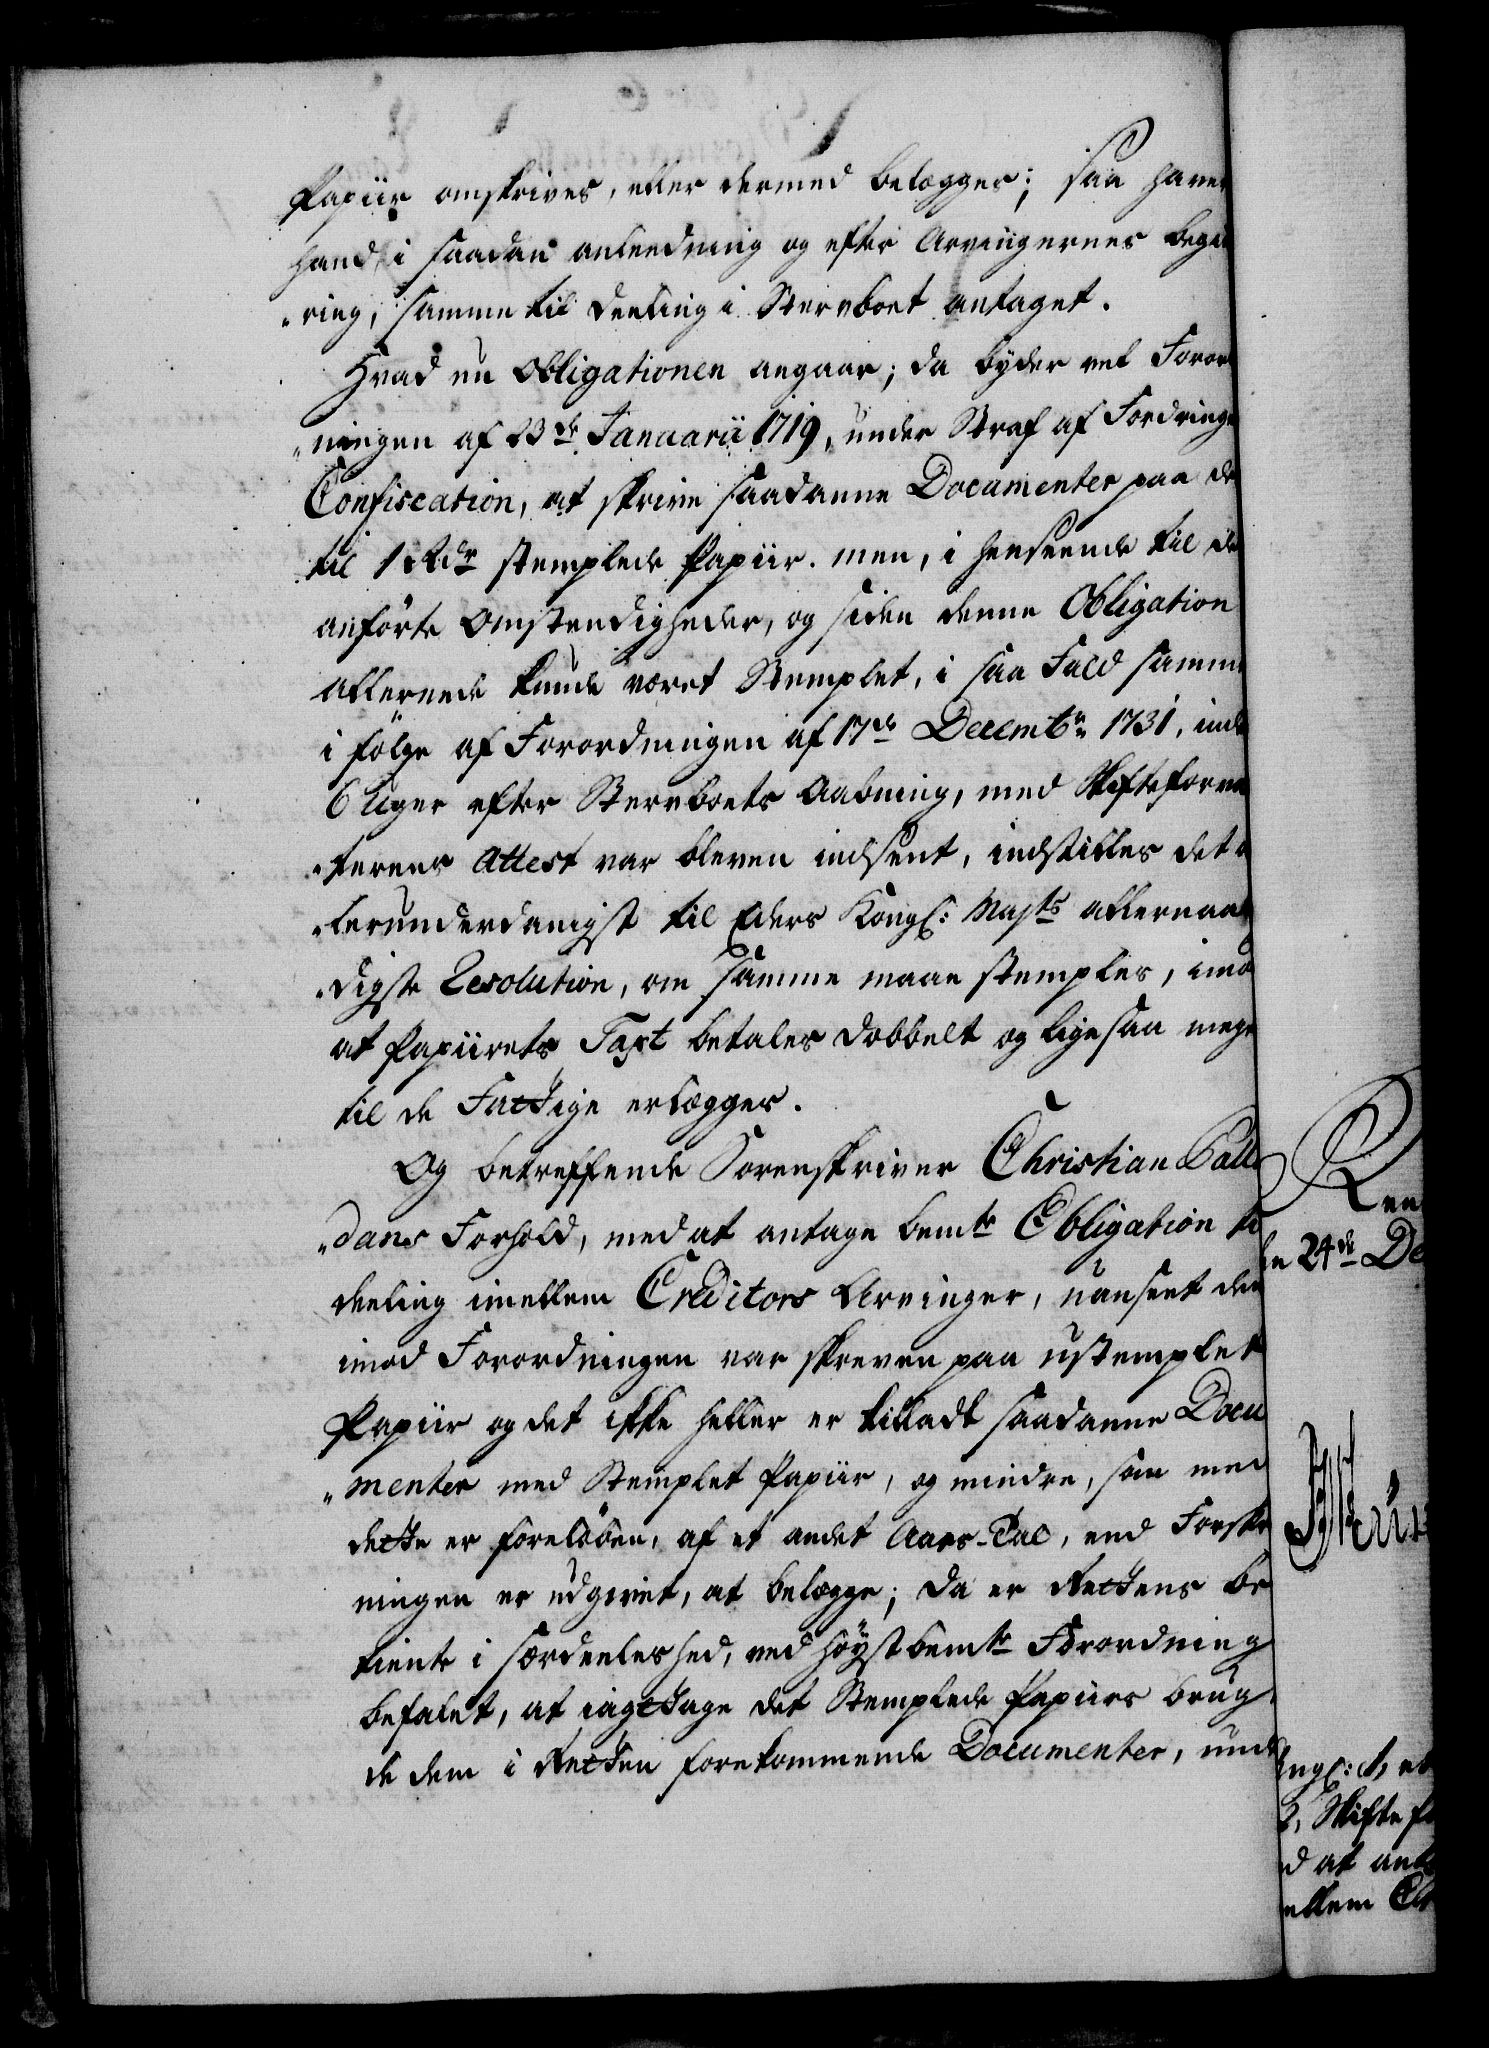 Papiir omskrives, eller dermed belægges; saa haver
hand, i saadan anleedning og efter Arvingernes begie
"ring, samme til deeling i Stervboet antaget.
Hvad nu Obligationen angaar; da byder vel Foror
"ningen af 23de Januarii 1719, under Straf af Fordringe
Confiscation, at skrive saadanne Documenter paa de
til 1 Rdr stemplede Papiir. men, i henseende til de
anförte Omstendigheder, og siden denne Obligation
allerede kunde været Stemplet, i saa Fald samme
i fölge af Forordningen af 17de Decembr 1731, inde
6 Uger efter Stervboets Aabning, med Skifteforval
"terens Attest var bleven indsent, indstilles det a
"lerunderdanigst til Eders Kongl: Mayts allernaa
"digste Resolution, om samme maae stemples, imo
at Papiirets Taxt betales dobbelt og ligesaa meget
til de Fattige erlægges.
Og betreffende Sorenskriver Christian Pall
"dans Forhold, med at antage bemte Obligation ti
deeling imellem Creditors Arvinger, uanseet den
imod Forordningen var skreven paa ustemplet
Papiir og det ikke heller er tilladt saadanne Docu
"menter med Stemplet Papiir, og mindre, som med
dette er forelöben, af et andet Aars-Tal, end Forskr
ningen er udgivet, at belægge; da er Rettens be
tiente i særdeeleshed, ved höystbemte Forordning
befalet, at iagttage det Stemplede Papiirs brug
de dem i Retten forekommende Documenter, unde
Ren
en 24de De
ngl:
2, Skiftefo
d at anta
ellem Cre